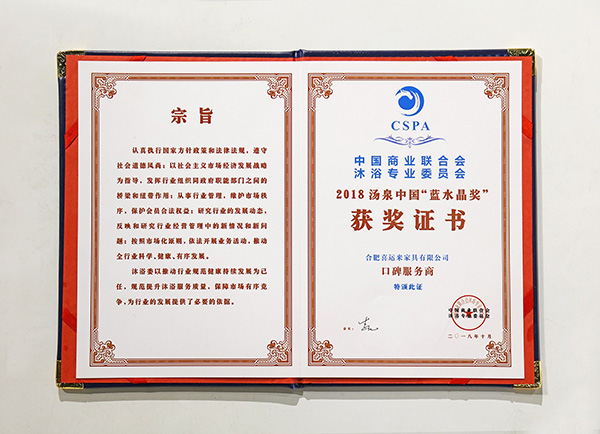 宗旨
认真执行国家方针政策和法律法规，遵守
社会道德风尚；以社会主义市场经济发展战略
为指导，发挥行业组织同政府职能部门之间的
桥梁和纽带作用；从事行业管理，维护市场秩
序，保护会员合法权益；研究行业的发展动态，
反映和研究行业经营管理中的新情况和新问
题；按照市场化原则，依法开展业务活动，推动
全行业科学、健康、有序发展。
沐浴委以推动行业规范健康持续发展为己
任，规范提升沐浴服务质量，保障市场有序竞
争，为行业的发展提供了必要的依据。
CSPA
中国商业联合会
沐浴专业委员会
2018 汤泉中国“蓝水晶奖”
获奖证书
合肥喜运来家具有限公司
口碑服务商
特颁此证
会长：
中国商业联合会
沐浴专业委员会
二〇一八年十月